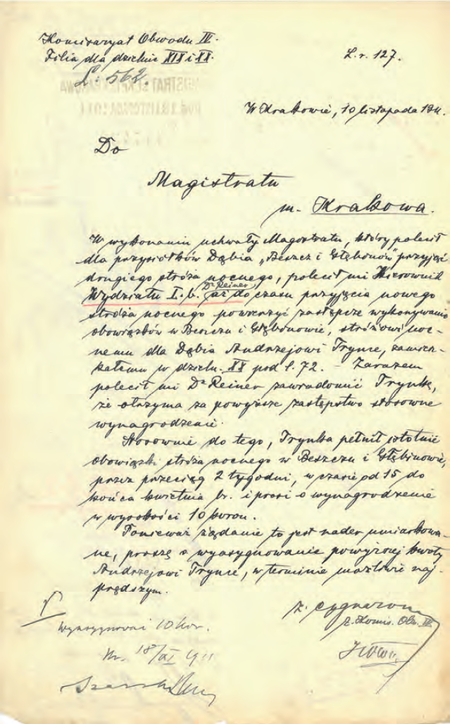 Komisaryat Obwodu IV.
Filia dla dzielnic XIX i XX.
L: 562.
L. r. 127.
W Krakowie, 10 listopada 1911.
Do
Magistratu
m. Krakowa.
W wykonaniu uchwały Magistratu, który polecił
dla przysiółków Dąbia „Beszcz i Głębinów” przyjąć
drugiego stróża nocnego, polecił mi Kierownik
Wydziału I.b. Dr Reiner aż do czasu przyjęcia nowego
stróża nocnego poruczyć zastępcze wykonywanie
obowiązków w Beszczu i Głębinowie, stróżowi noc-
nemu dla Dąbia Andrzejowi Trynce, zamiesz-
kałemu w dzieln. XX pod l. 72. – Zarazem
polecił mi Dr Reiner zawiadomić Trynkę,
że otrzyma za powyższe zastępstwo stosowne
wynagrodzenie.
Stosownie do tego, Trynka pełnił istotnie
obowiązki stróża nocnego w Beszczu i Głębinowie,
przez przeciąg 2 tygodni, w czasie od 15 do
końca kwietnia br. i prosi o wynagrodzenie
w wysokości 10 koron.
Ponieważ żądanie to jest nader umiarkowa-
ne, proszę o wyasygnowanie powyższej kwoty
Andrzejowi Trynce, w terminie możliwie naj-
prędszym.
10 kor.
18/XI 911
Komis. Obw. IV.